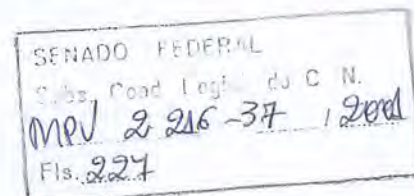 SENADO FEDERAL
Subs. Coord. Legis. do C. N.
MPV 2.216-37 / 2001
Fls. 227